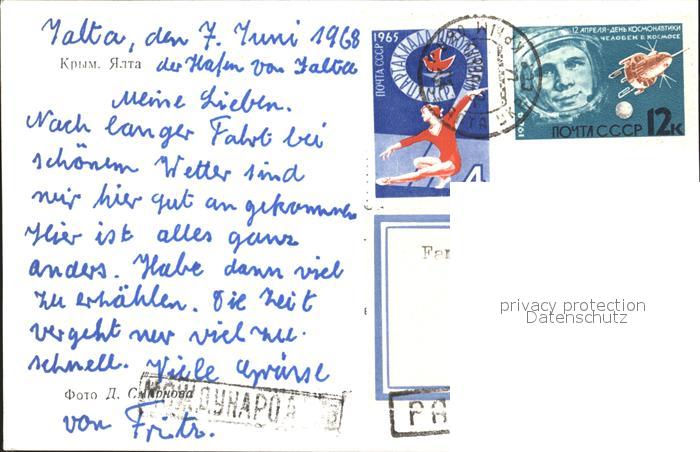 Yalta, den 7. Juni 1968
Крым. Ялта der Hafen von Yalta
Meine Lieben.
Nach langer Fahrt bei
schönem Wetter sind
wir hier gut angekommen
Hier ist alles ganz
anders. Habe dann viel
zu erzählen. Die Zeit
vergeht nur viel zu
schnell. Viele Grüsse
Фото Д. Смирнова
von Fritz.
МЕЖДУНАРОД
1965
ПОЧТА СССР
СПАРТАКИАДА
4
12 АПРЕЛЯ-ДЕНЬ КОСМОНАВТИКИ
ЧЕЛОВЕК В КОСМОСЕ
ПОЧТА СССР 12К
Fa
privacy protection
Datenschutz
PA